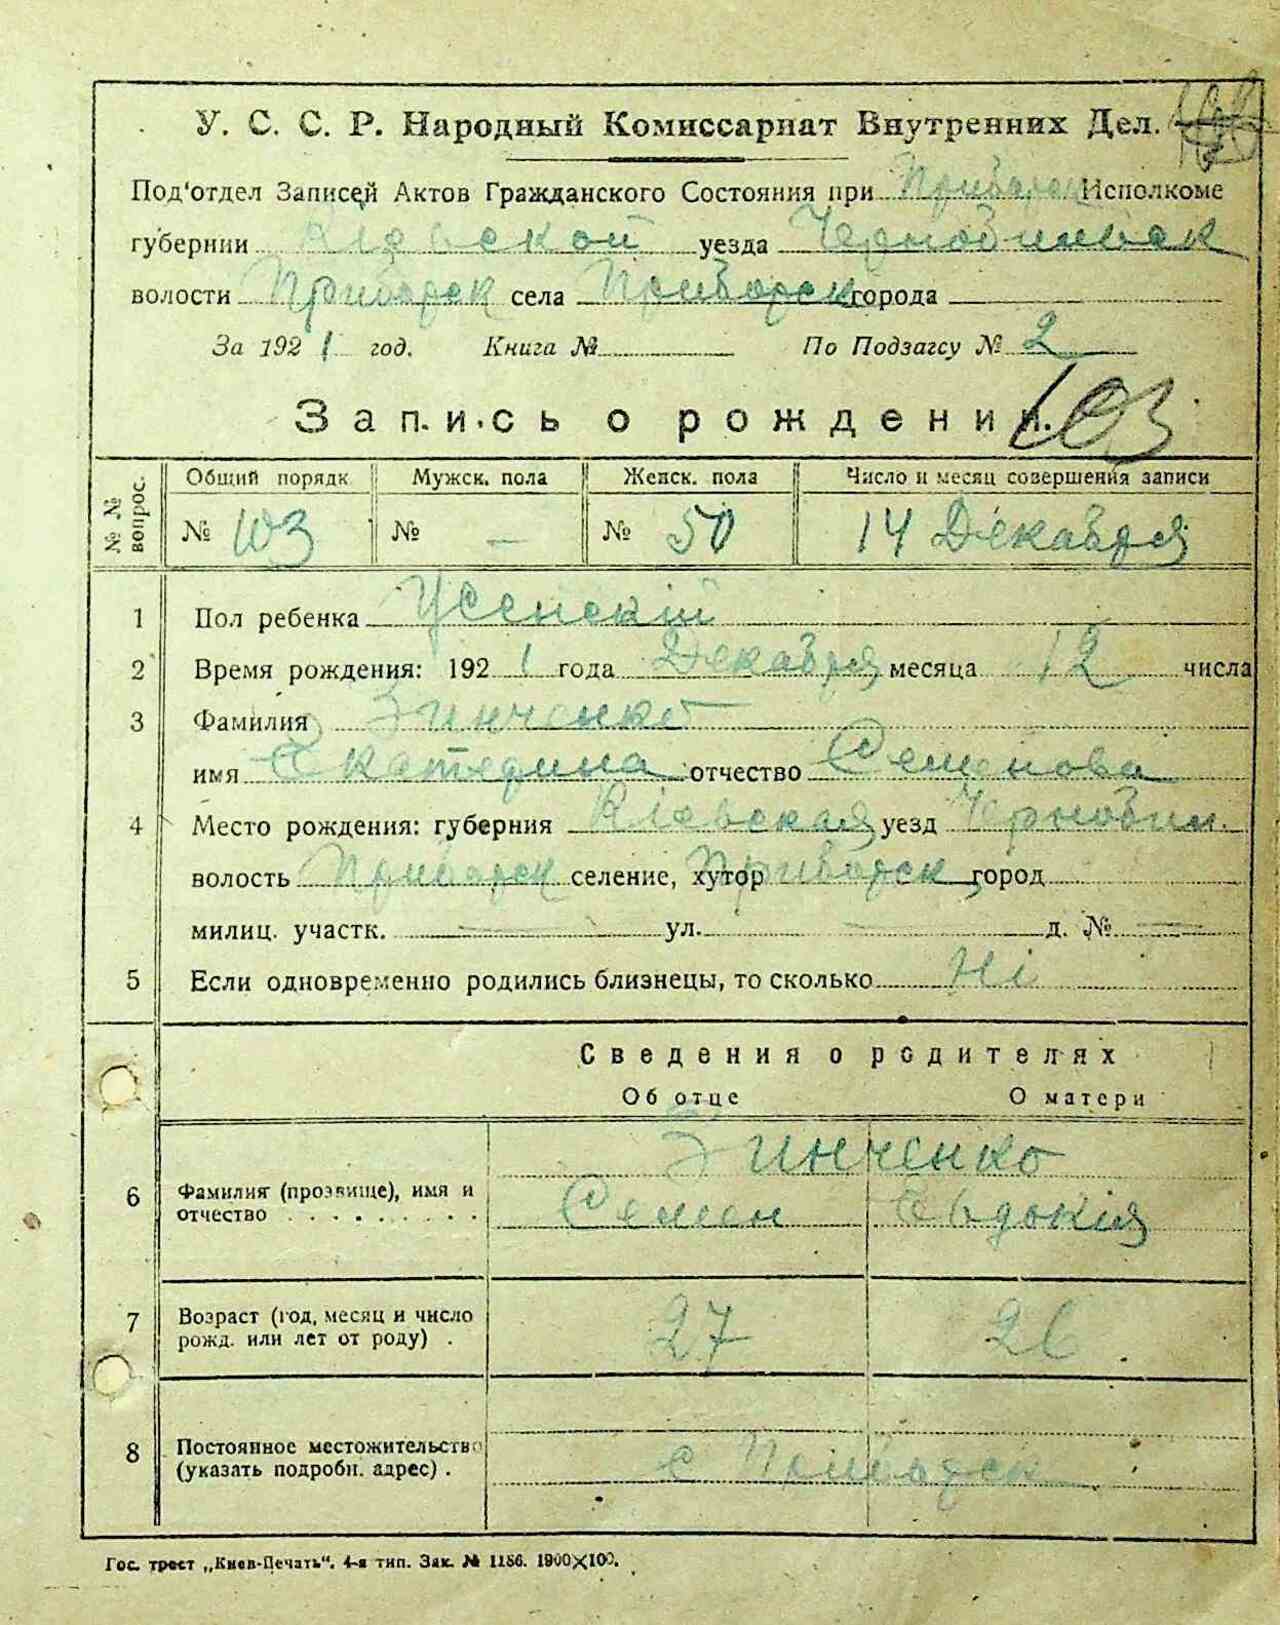 У. С. С. Р. Народный Комиссариат Внутренних Дел.
Под'отдел Записей Актов Гражданского Состояния при Приборск Исполкоме
губернии Кіевской уезда Чернобильск
волости Приборск села Приборск города
За 1921 год. Книга № По Подзагсу № 2
Запись о рождении. 103
№ № вопрос. Общий порядк. Мужск. пола Женск. пола Число и месяц совершения записи
№ 103 № — № 50 14 Декабря
1 Пол ребенка Женскій
2 Время рождения: 1921 года Декабря месяца 12 числа
3 Фамилия Зинченко
имя Екатерина отчество Семенова
4 Место рождения: губерния Кіевская уезд Чернобил.
волость Приборск селение, хутор Приборск город
милиц. участк. — ул. — д. № —
5 Если одновременно родились близнецы, то сколько Ні
Сведения о родителях
Об отце О матери
Зинченко
6 Фамилия (прозвище), имя и
отчество Семен Евдокія
7 Возраст (год, месяц и число
рожд. или лет от роду) . 27 26
8 Постоянное местожительство
(указать подробн. адрес) . с Приборск
Гос. трест „Киев-Печать“. 4-я тип. Зак. № 1186. 1900×100.